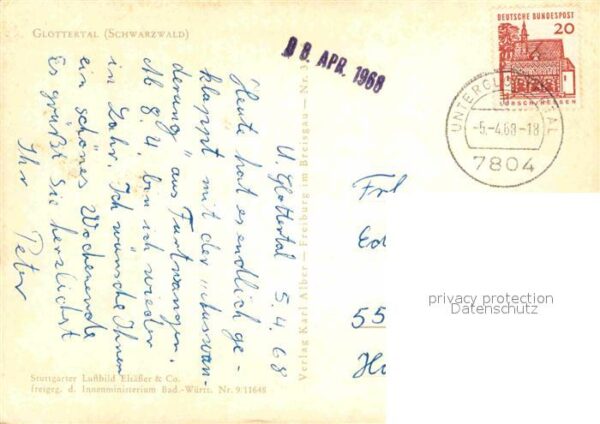 GLOTTERTAL (SCHWARZWALD)
0 8. APR. 1968
DEUTSCHE BUNDESPOST
20
LORSCH/HESSEN
UNTERGLOTTERTAL
-5.-4.68-18
7804
U. Glottertal 5.4.68
Heute hat es endlich ge-
klappt mit der "Auswan-
derung" aus Furtwangen.
Ab 8.4. bin ich wieder
in Lahr. Ich wünsche Ihnen
ein schönes Wochenende
Es grüßt Sie herzlichst
Ihr Peter
Verlag Karl Alber — Freiburg im Breisgau — Nr.
Frl
55
privacy protection
Datenschutz
Stuttgarter Luftbild Elsäßer & Co.
freigeg. d. Innenministerium Bad.-Württ. Nr. 9/11648